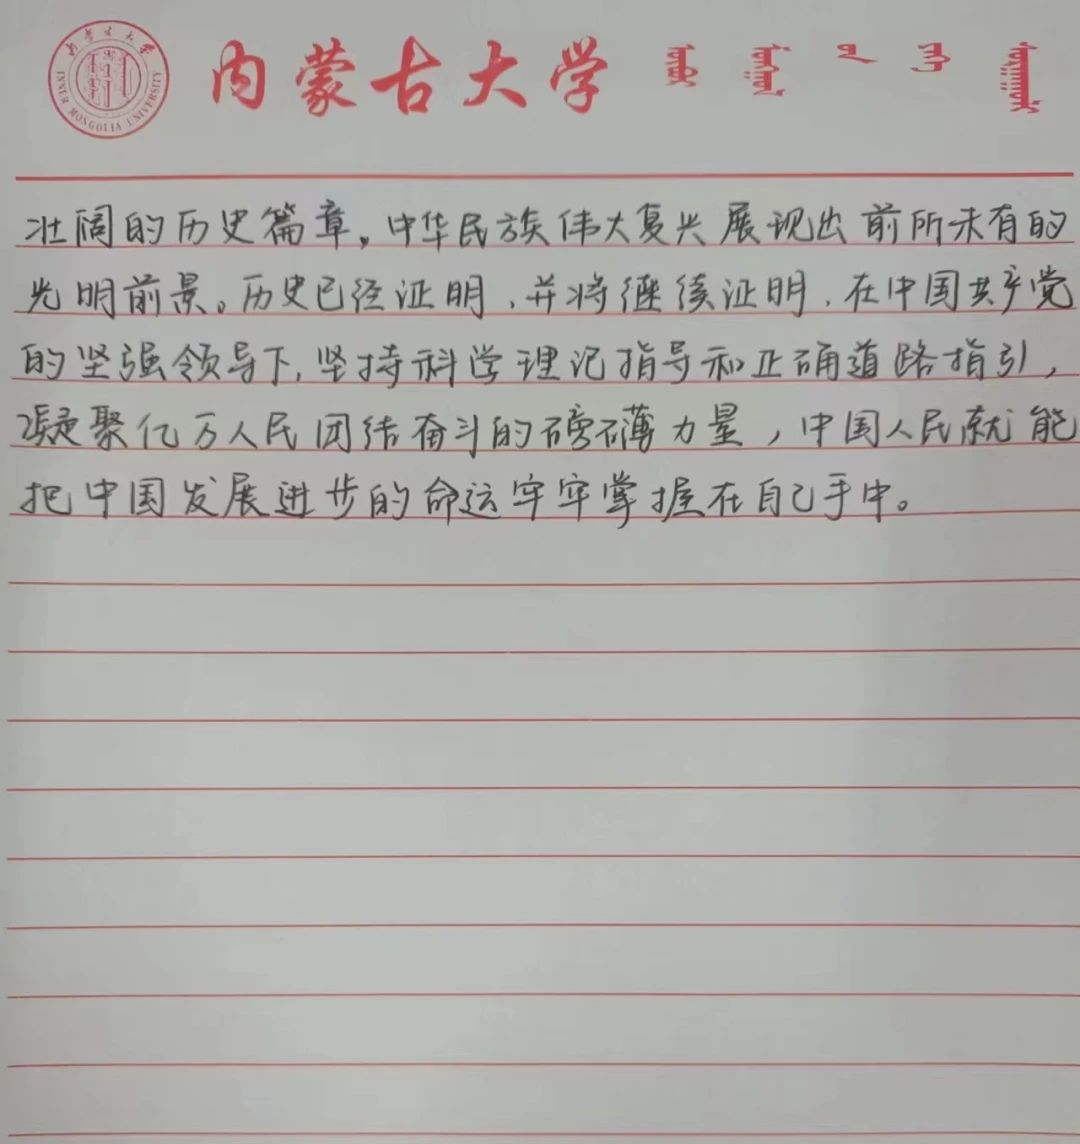 内蒙古大学
INNER MONGOLIA UNIVERSITY
壮阔的历史篇章，中华民族伟大复兴展现出前所未有的
光明前景。历史已经证明，并将继续证明，在中国共产党
的坚强领导下，坚持科学理记指导和正确道路指引，
凝聚亿万人民团结奋斗的磅礴力量，中国人民就能
把中国发展进步的命运牢牢掌握在自己手中。